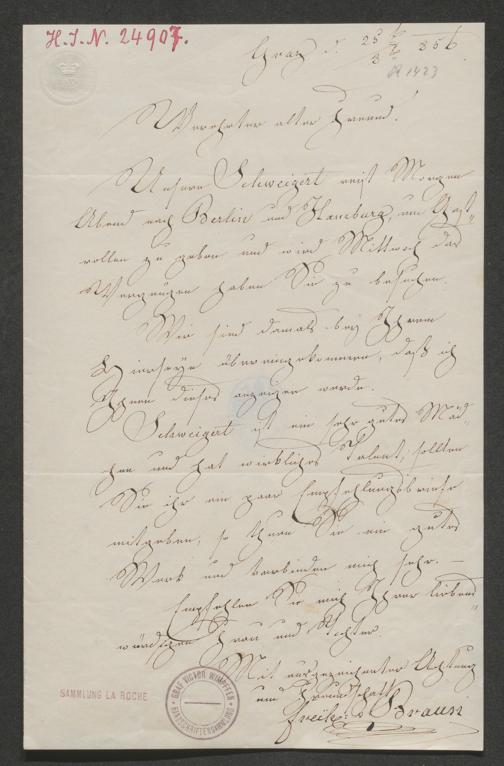 H. I. N. 24907.
Graz d. 25/3 856
Verehrter alter Freund!
Unsere Schweigert reist Morgen
Abend nach Berlin und Hamburg, um Gast-
rollen zu geben und wird Mittwoch das
Vergnügen haben Sie zu besuchen.
Wir sind damals bey Ihrem
Hierseyn übereingekommen, daß ich
Ihnen dieses anzeigen werde.
Schweigert ist ein sehr gutes Mäd-
chen und hat wirkliches Talent, sollten
Sie ihr ein paar Empfehlungsbriefe
mitgeben, so thun Sie ein gutes
Werk und verbinden mich sehr. –
Empfehlen Sie mich Ihrer liebens-
würdigen Frau und Tochter.
Mit ausgezeichneter Achtung
und Freundschaft
Braun
SAMMLUNG LA ROCHE
GRAF VICTOR WIMPFFEN
HANDSCHRIFTENSAMMLUNG